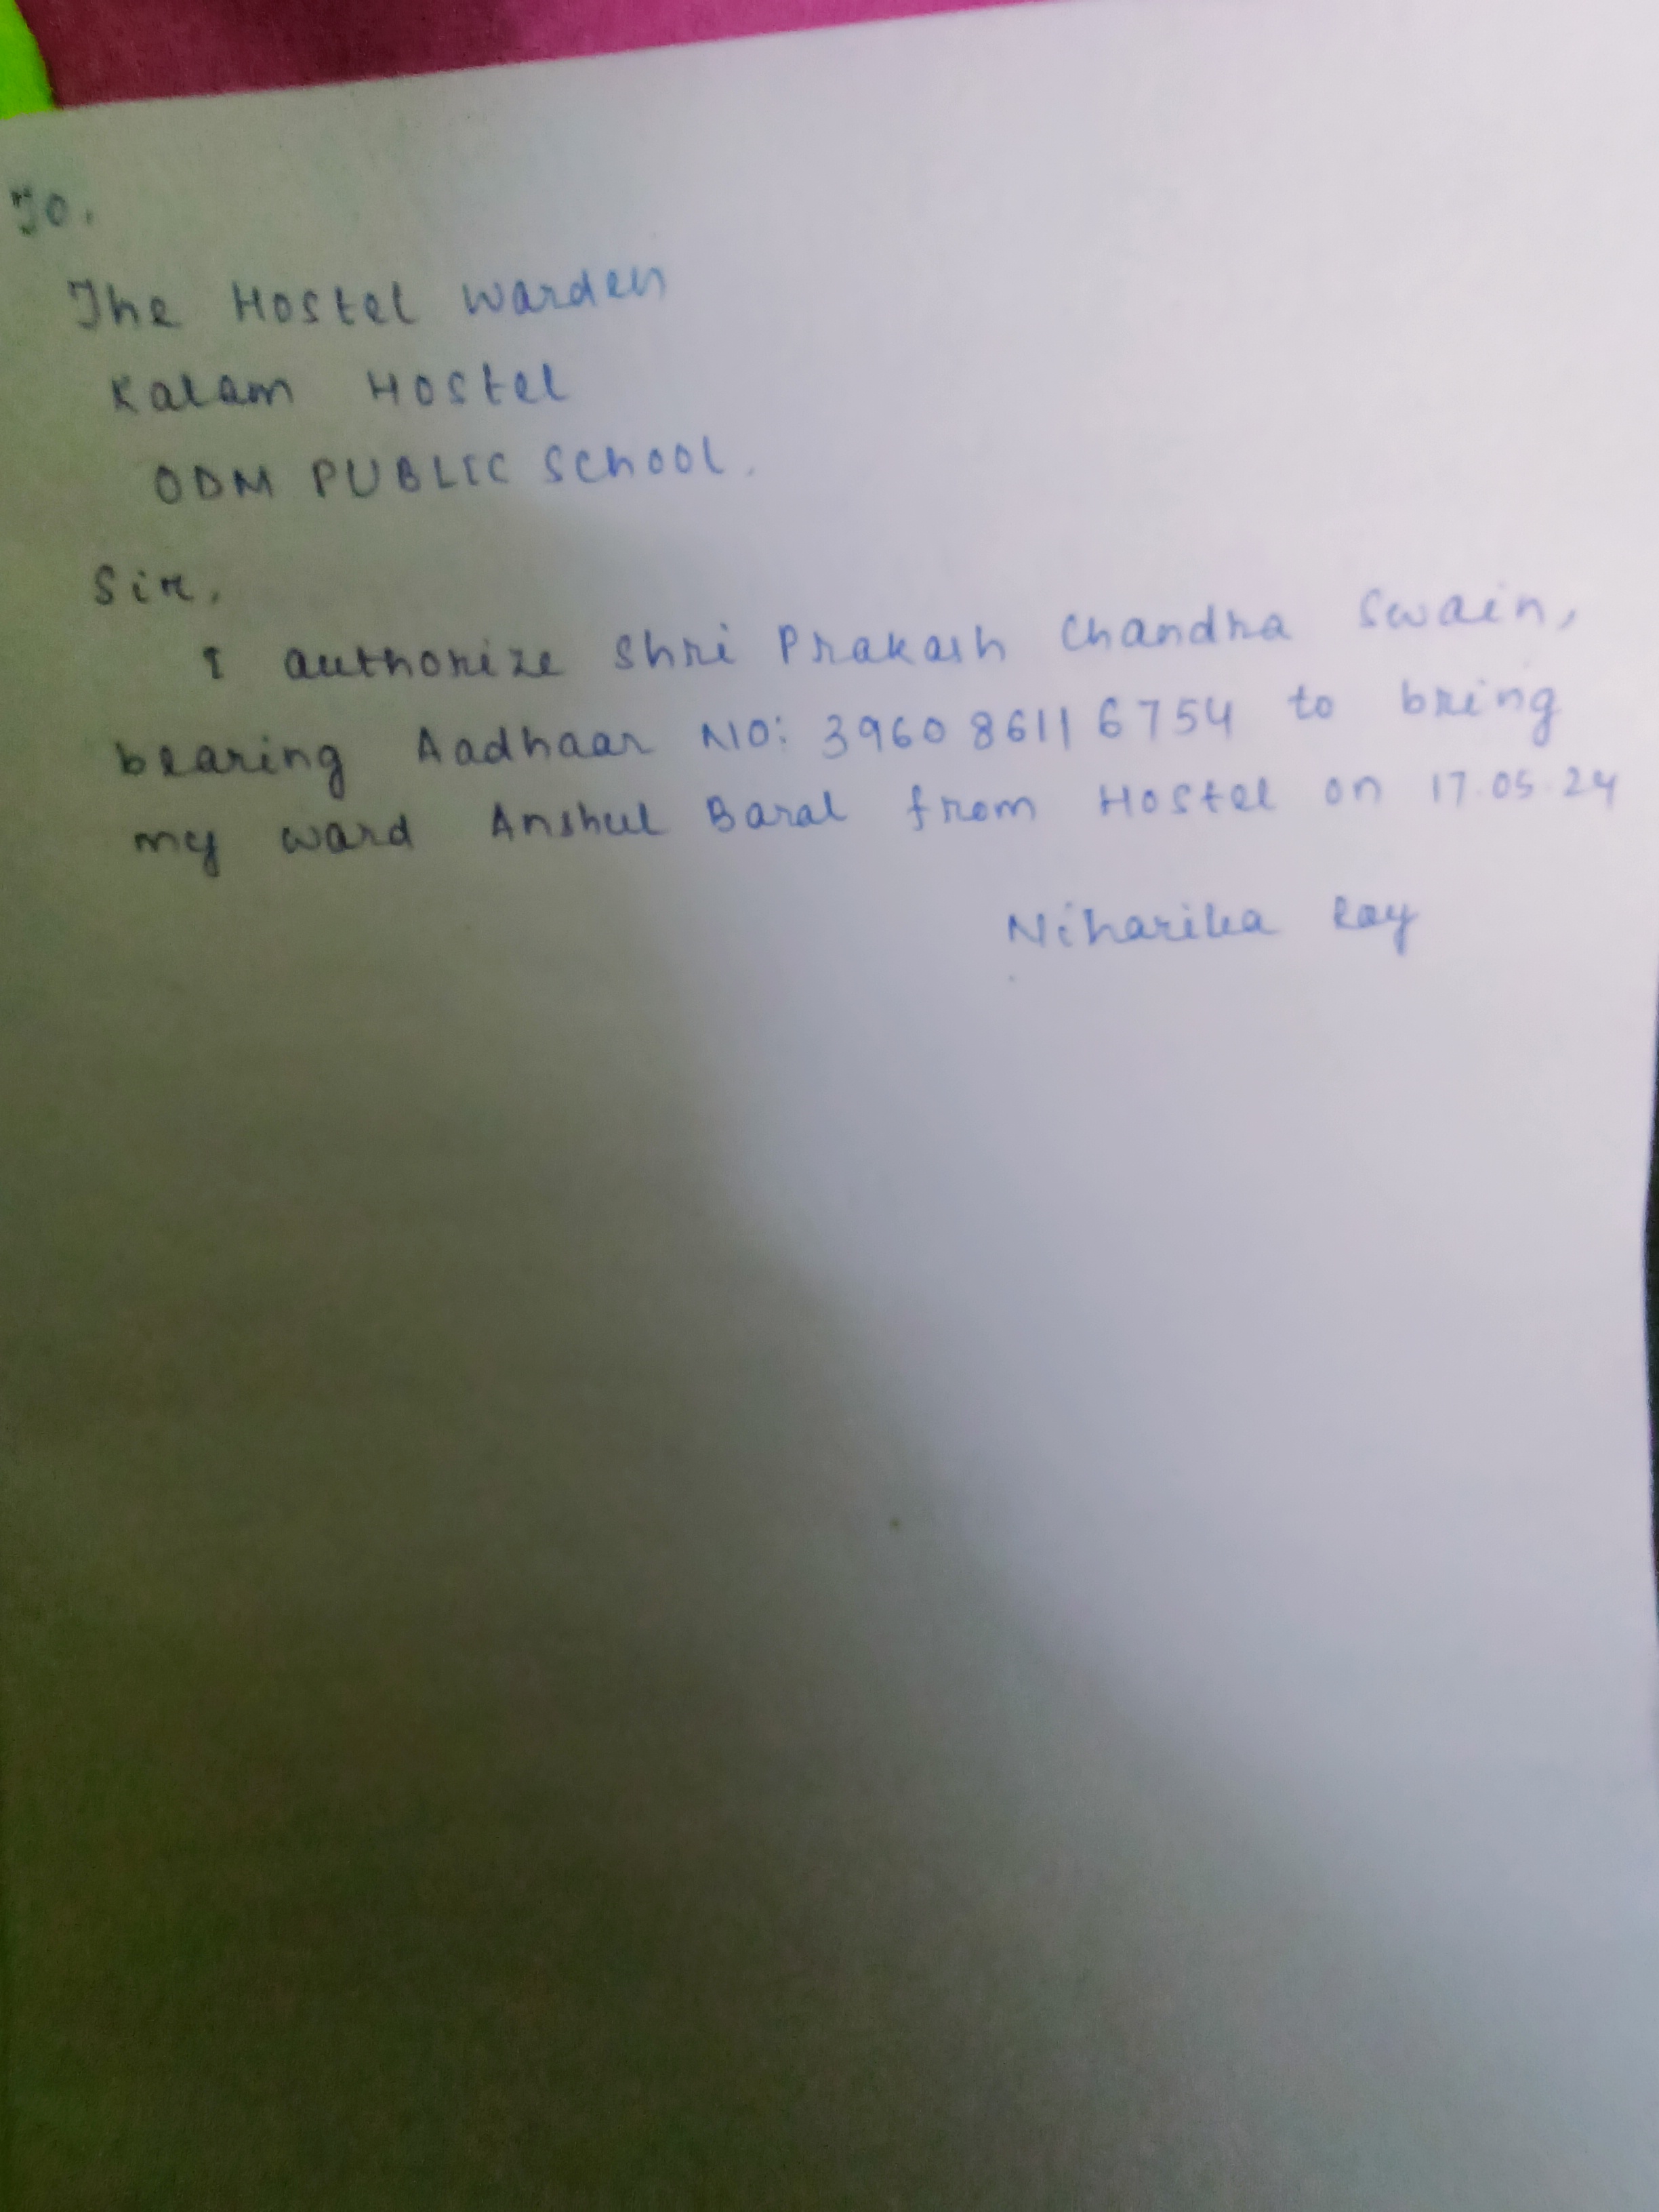 To.
The Hostel Warden
Kalam Hostel
ODM PUBLIC School.
Sir,
I authorize Shri Prakash Chandra Swain,
bearing Aadhaar NO: 3960 8611 6754 to bring
my ward Anshul Baral from Hostel on 17.05.24
Niharika Ray